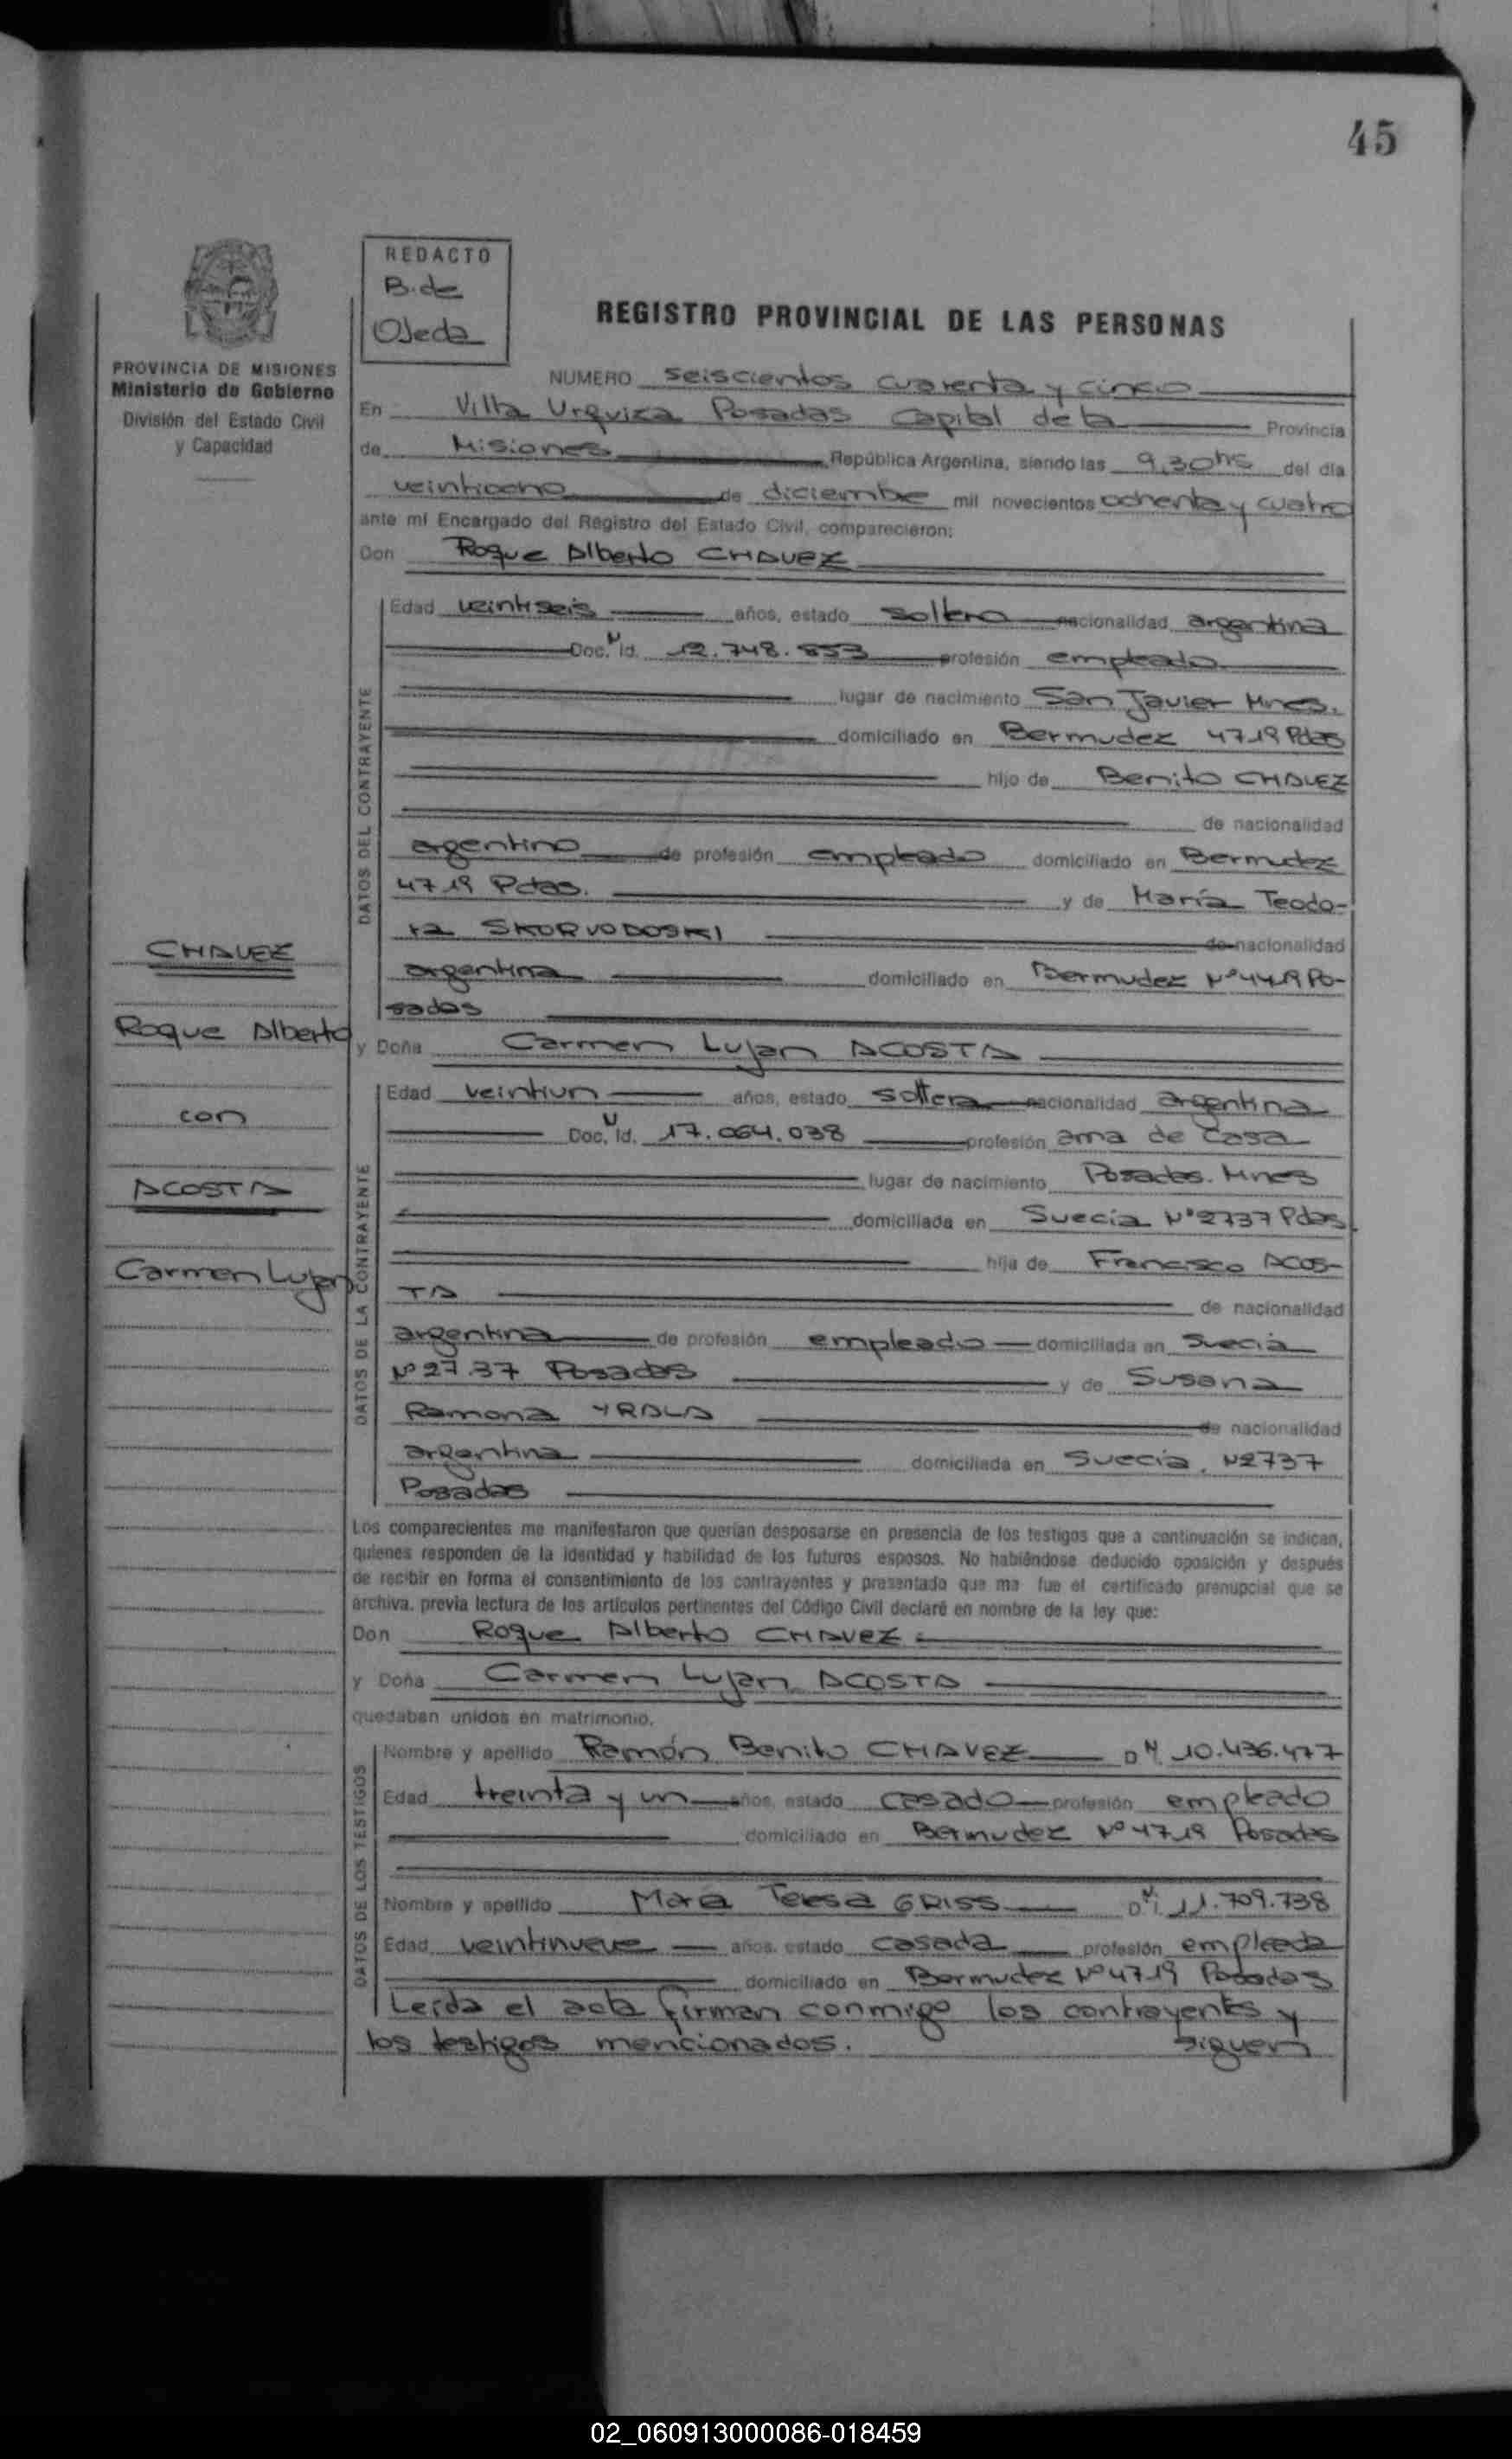 45
REDACTO
B. de
Ojeda
PROVINCIA DE MISIONES
Ministerio de Gobierno
División del Estado Civil
y Capacidad
REGISTRO PROVINCIAL DE LAS PERSONAS
NUMERO seiscientos cuarenta y cinco
En Villa Urquiza Posadas Capital de la Provincia
de Misiones República Argentina, siendo las 9,30hs del día
veintiocho de diciembre mil novecientos ochenta y cuatro
ante mí Encargado del Registro del Estado Civil, comparecieron:
Don Roque Alberto CHAVEZ
DATOS DEL CONTRAYENTE
Edad veintiseis años, estado soltero nacionalidad argentina
Doc. N Id. 12.748.853 profesión empleado
lugar de nacimiento San Javier Mnes.
domiciliado en Bermudez 4719 Pdas
hijo de Benito CHAVEZ
de nacionalidad
argentino de profesión empleado domiciliado en Bermudez
4719 Pdas. y de María Teodo-
ra SKORVODOSKI de nacionalidad
argentina domiciliado en Bermudez Nº 4419 Po-
sadas
CHAVEZ
Roque Alberto
con
ACOSTA
Carmen Lujan
y Doña Carmen Lujan ACOSTA
DATOS DE LA CONTRAYENTE
Edad veintiun años, estado soltera nacionalidad argentina
Doc. N Id. 17.064.038 profesión ama de casa
lugar de nacimiento Posadas. Mnes
domiciliada en Suecia Nº 2737 Pdas.
hija de Francisco ACOS-
TA de nacionalidad
argentina de profesión empleado domiciliada en Suecia
Nº 27.37 Posadas y de Susana
Ramona YRALA de nacionalidad
argentina domiciliada en Suecia. N2737
Posadas
Los comparecientes me manifestaron que querían desposarse en presencia de los testigos que a continuación se indican,
quienes responden de la identidad y habilidad de los futuros esposos. No habiéndose deducido oposición y después
de recibir en forma el consentimiento de los contrayentes y presentado que me fue el certificado prenupcial que se
archiva. previa lectura de los artículos pertinentes del Código Civil declaré en nombre de la ley que:
Don Roque Alberto CHAVEZ
y Doña Carmen Lujan ACOSTA
quedaban unidos en matrimonio.
DATOS DE LOS TESTIGOS
Nombre y apellido Ramón Benito CHAVEZ D N. 10.436.477
Edad treinta y un años, estado casado profesión empleado
domiciliado en Bermudez Nº 4719 Posadas
Nombre y apellido Mara Teresa GRISS D N I. 11.709.738
Edad veintinueve años, estado casada profesión empleada
domiciliado en Bermudez Nº 4719 Posadas
Leida el acta firman conmigo los contrayentes y
los testigos mencionados. siguen
02_060913000086-018459